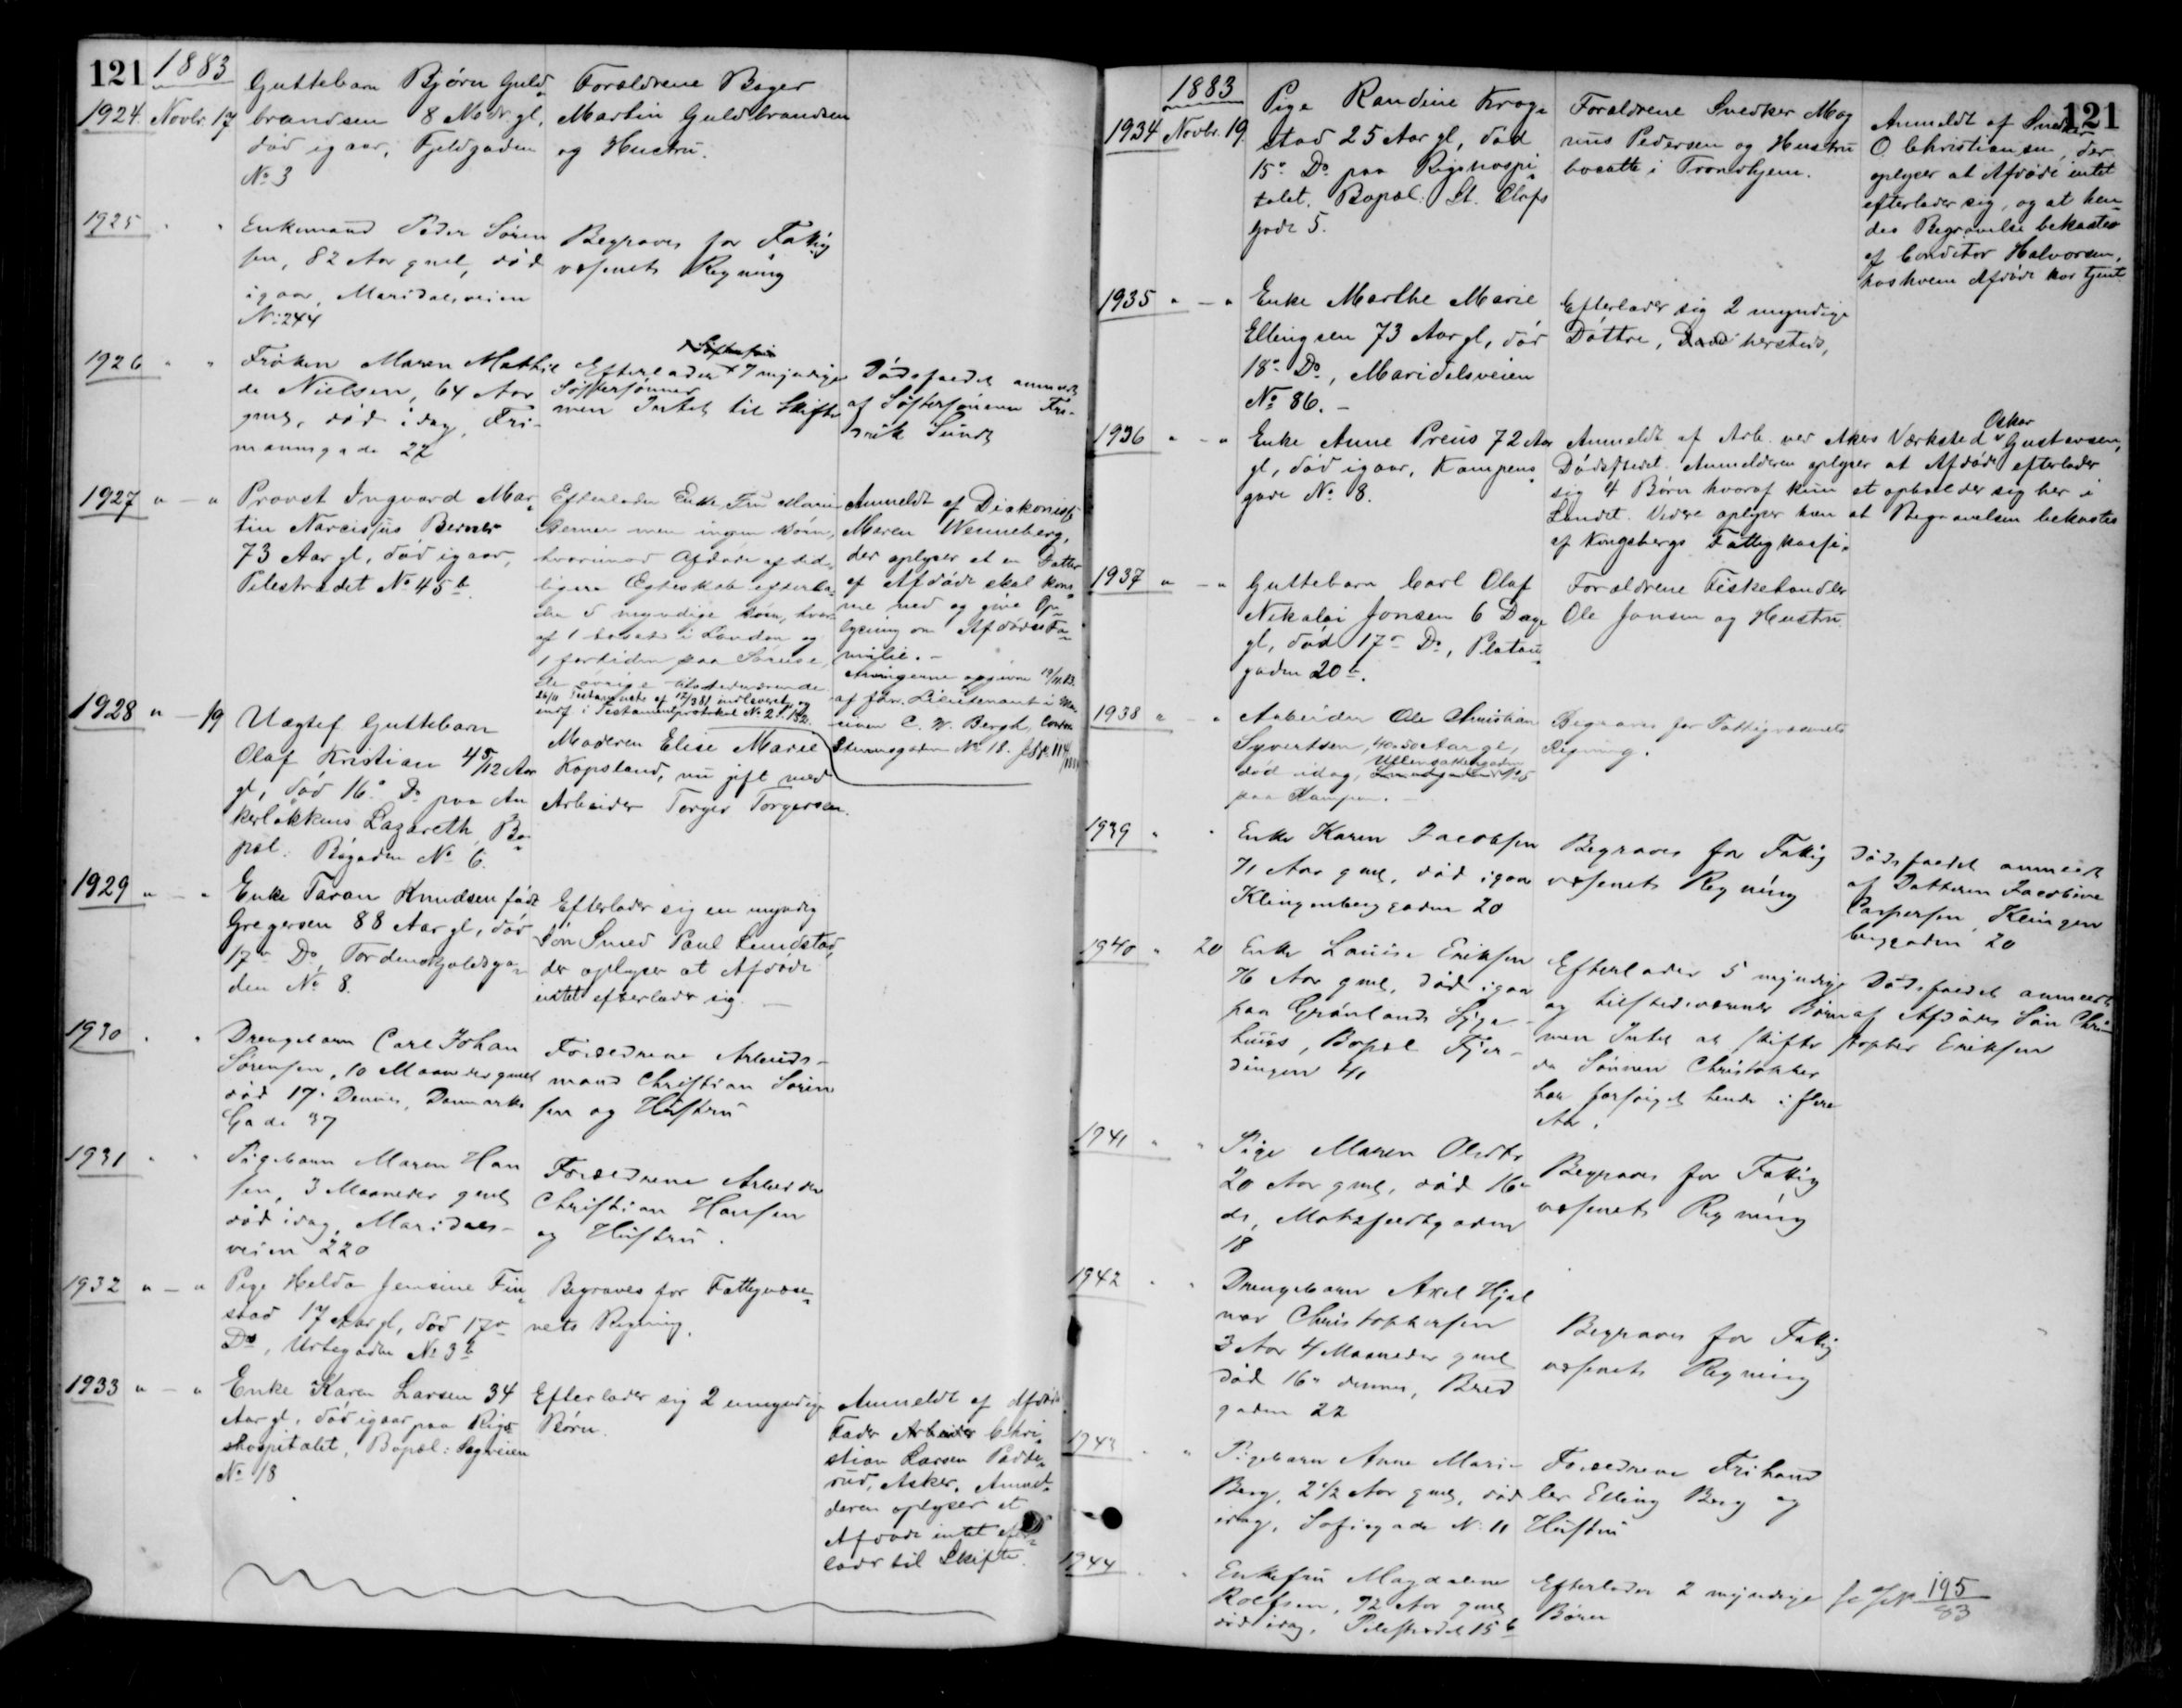 121 1883
1924 Novbr. 17
Guttebarn Bjørn Guld-
brandsen 8 Mdr. gl,
død igaar, Fjeldgaden
No 3
Forældrene Bager
Martin Guldbrandsen
og Hustru.
1925 " "
Enkemand Peder Søren
sen, 82 Aar gael, død
igaar, Maridalsveien
No: 244
Begraves for Fattig
væsenets Regning
1926 " "
Frøken Maren Mathil
de Nielsen, 64 Aar
gml, død idag, Fri-
mannsgade 27
Efterlader 7 myndige
Søstersønner
men Intet til Skifte
Dødsfaldet anmeldt
af Søstersønnen Fre-
drik Sundt
1927 " - "
Provst Ingvard Mar-
tin Narcissus Berner
73 Aar gl, død igaar,
Pilestrædet No 45b.
Efterlader Enke Fru Marie
Berner men ingen Børn,
hvorimod Afdøde af tid-
ligere Ægteskab efterla-
der 5 myndige Børn, hvor-
af 1 bosat i London og
1 fortiden paa Reise,
de øvrige tilstedeværende
26/11 Testamente af 12/9 81 indleveret og
indf i Testamentprotokol No 2 f. 132.
Anmeldt af Diakonisse
Maren Wenneberg,
der oplyser at en Datter
af Afdøde skal kom-
me ned og give Op-
lysning om Afdødes Fa-
milie. -
Arvingerne opgivne 19/11 83
af før. Lieutenant i Ma-
rinen C. W. Bergh,
Stensgaden No 18.
1928 " - 19
Uægtef Guttebarn
Olaf Kristian 4 5/12 Aar
gl, død 16de Do paa An
kerløkkens Lazareth, Bo-
pæl: Bøgaden No 6.
Moderen Elise Marie
Kopsland, nu gift med
Arbeider Torger Torgersen.
1929 " - "
Enke Taran Knudsen født
Gregersen 88 Aar gl, død
17de Do, Tordenskjoldsga-
den No 8.
Efterlader sig en myndig
Søn Smed Paul Lundstad,
der oplyser at Afdøde
intet efterlader sig. -
1930 " "
Drengebarn Carl Johan
Sørensen, 10 Maaneder gmel
død 17. Dennes, Danmarks
Gade 37
Forældrene Arbeids-
mand Christian Søren
sen og Hustru
1931 " "
Pigebarn Maren Han
sen, 3 Maaneder gmel
død idag, Maridals-
veien 220
Forældrene Arbeider
Christian Hansen
og Hustru.
1932 " - "
Pige Helda Jensine Fin-
stad 17 Aar gl, død 17de
Do, Urtegaden No 3b
Begraves for Fattigvæse-
nets Regning.
1933 " - "
Enke Karen Larsen 34
Aar gl, død igaar paa Rigs
hospitalet, Bopæl: Sagveien
No 18
Efterlader sig 2 umyndige
Børn.
Anmeldt af Afdødes
Fader Arbeider Chri-
stian Larsen Padde-
rud, Asker. Anmel-
deren oplyser at
Afdøde intet efter-
lader til Skifte.
1883 121
1934 Novbr. 19.
Pige Randine Krog-
stad 25 Aar gl, død
15de Do paa Rigshospi-
talet. Bopæl: St. Olafs
gade 5.
Forældrene Snedker Mag
nus Pedersen og Hustru
bosatte i Trondhjem.
Anmeldt af Snedker
O. Christiansen, der
oplyser at Afdøde intet
efterlader sig, og at hen-
des Begravelse bekostes
af Conditor Halvorsen,
hos hvem Afdøde har tjent.
1935 " - "
Enke Marthe Marie
Ellingsen 73 Aar gl, død
18de Do, Maridalsveien
No 86. -
Efterlader sig 2 myndige
Døttre, hersteds,
1936 " - "
Enke Anne Preus 72 Aar
gl, død igaar, Kampens
gade No 8.
Oskar
Anmeldt af Arb. ved Akers Værksted Gustavsen,
Dødsstedet. Anmelderen oplyser at Afdøde efterlader
sig 4 Børn hvoraf kun et opholder sig her i
Landet. Videre oplyser han at Begravelsen bekostes
af Kongsbergs Fattigkasse.
1937 " - "
Guttebarn Carl Olaf
Nikolai Jonsen 6 Dage
gl, død 17de Do, Platou-
gaden 20b.
Forældrene Fiskehandler
Ole Jonsen og Hustru
1938 " "
Arbeider Ole Christian
Syvertsen, Aar gl,
død idag, Ullensakergaden No 5
paa Kampen. -
Begraves for Fattigvæsenets
Regning.
1939 " "
Enke Karen Jacobsen
71 Aar gml, død igaar
Klingenberggaden 20
Begraves for Fattig
væsenets Regning
Dødsfaldet anmeldt
af Datteren Jacobine
Caspersen, Klingen
berggaden 20
1940 " 20
Enke Louise Eriksen
76 Aar gml, død igaar
paa Grønlands Syge-
huus, Bopæl Fjer-
dingen 41
Efterlader 5 myndige
og tilstedeværende Børn
men Intet at skifte
da Sønnen Christopher
har forsørget hende i flere
Aar.
Dødsfaldet anmeldt
af Afdødes Søn Chri
stopher Eriksen
1941 " "
Pige Maren Olsdtr
20 Aar gml, død 16de
ds, Motzfeldtgaden
18
Begraves for Fattig
væsenets Regning
1942 " "
Drengebarn Axel Hjal
mar Christophersen
3 Aar 4 Maaneder gmel
død 16de dennes, Bred
gaden 22
Begraves for Fattig
væsenets Regning
1943 " "
Pigebarn Anne Marie
Berg, 2 1/2 Aar gml, død
idag, Sofiegade No 11
Forældrene Frihand
ler Elling Berg og
Hustru
1944 " "
Enkefru Magdalene
Rolfsen, 72 Aar gml
død idag, Pilestrædet 15b
Efterlader 2 myndige
Børn
195
83